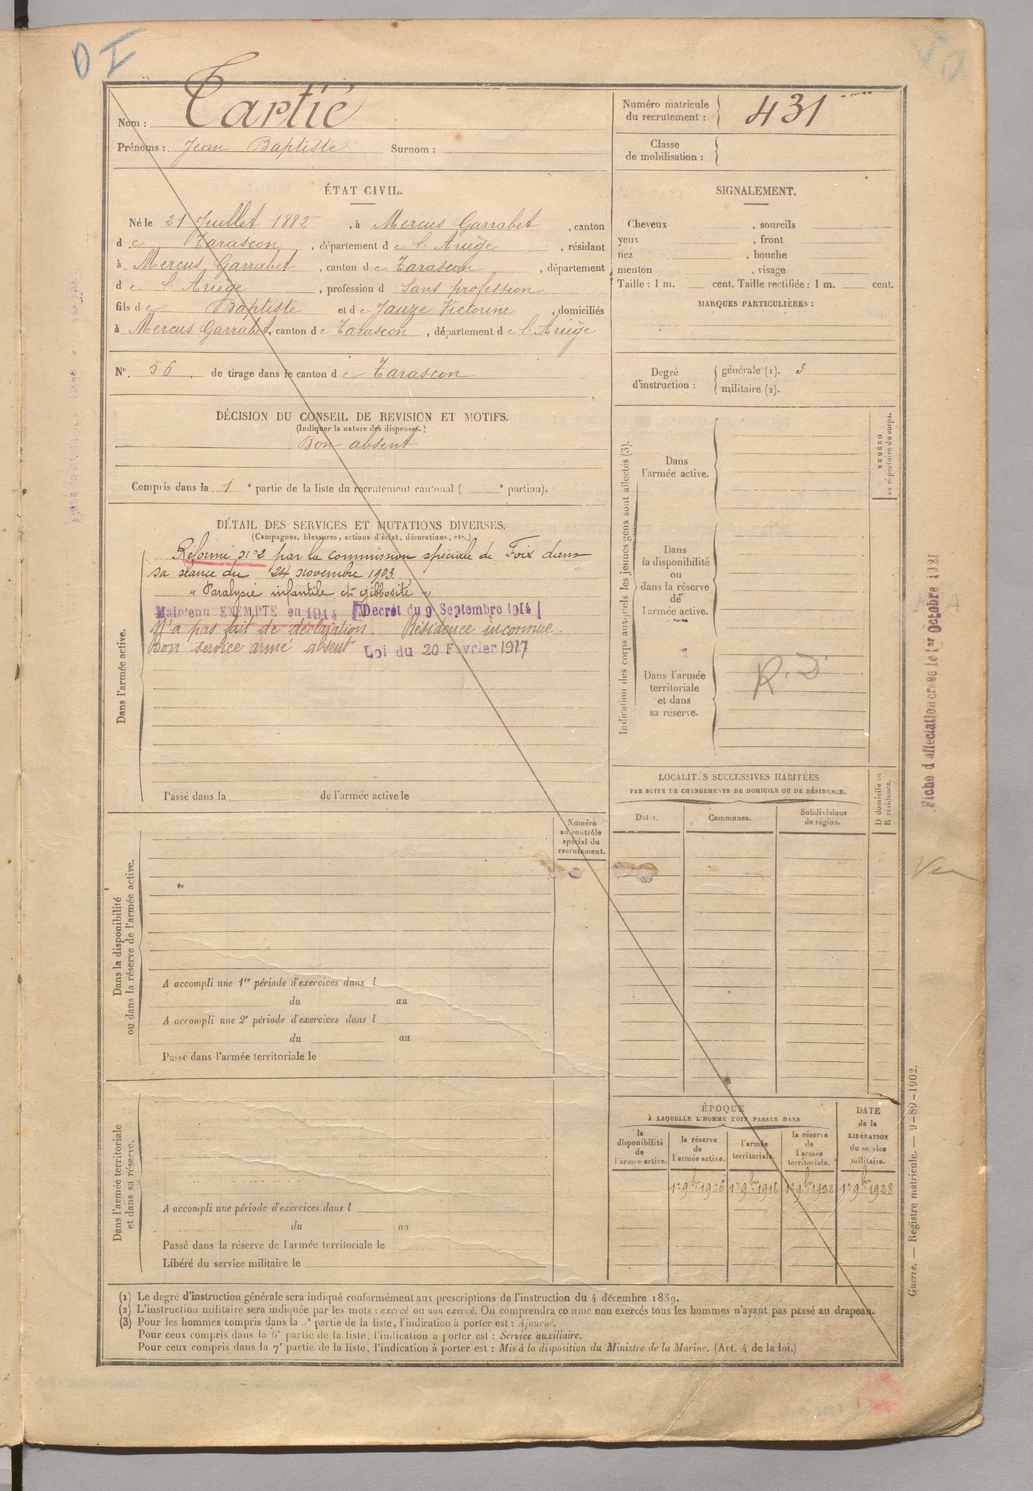 Nom : Tartié
Prénoms : Jean Baptiste Surnom :
Numéro matricule du recrutement : 431
Classe de mobilisation :
ÉTAT CIVIL.
Né le 21 Juillet 1882, à Mercus Garrabet, canton
d e Tarascon, département d e l'Ariège, résidant
à Mercus Garrabet, canton d e Tarascon, département
d e l'Ariège, profession d Sans profession
fils d e Baptiste et d e Jauze Victorine, domiciliés
à Mercus Garrabet, canton d e Tarascon, département d e l'Ariège
N° 56 de tirage dans le canton d e Tarascon
SIGNALEMENT.
Cheveux , sourcils
yeux , front
nez , bouche
menton , visage
Taille : 1 m. cent. Taille rectifiée : 1 m. cent.
MARQUES PARTICULIÈRES :
Degré d'instruction : générale (1). 3
militaire (2).
DÉCISION DU CONSEIL DE REVISION ET MOTIFS.
(Indiquer la nature des dispenses.)
Bon absent
Compris dans la 1 e partie de la liste du recrutement cantonal ( e portion).
DÉTAIL DES SERVICES ET MUTATIONS DIVERSES.
(Campagnes, blessures, actions d'éclat, décorations, etc.)
Dans l'armée active.
Réformé n°2 par la commission spéciale de Foix dans
sa séance du 24 novembre 1903
" Paralysie infantile et gibbosité "
Maintenu EXEMPTÉ en 1914 Décret du 9 Septembre 1914
N'a pas fait de déclaration. Résidence inconnue.
Bon service armé absent Loi du 20 Février 1917
Passé dans la de l'armée active le
Indication des corps auxquels les jeunes gens sont affectés (3).
Dans l'armée active.
Dans la disponibilité ou dans la réserve de l'armée active.
Dans l'armée territoriale et dans sa réserve.
NUMÉRO au répertoire du corps.
Fiche d'affectation créée le 1er Octobre 1921
LOCALITÉS SUCCESSIVES HABITÉES
PAR SUITE DE CHANGEMENTS DE DOMICILE OU DE RÉSIDENCE.
Dates. Communes. Subdivisions de région. D domicile ou R résidence.
Numéro au contrôle spécial du recrutement.
Dans la disponibilité ou dans la réserve de l'armée active.
A accompli une 1re période d'exercices dans l
du au
A accompli une 2e période d'exercices dans l
du au
Passé dans l'armée territoriale le
Dans l'armée territoriale et dans sa réserve.
A accompli une période d'exercices dans l
du au
Passé dans la réserve de l'armée territoriale le
Libéré du service militaire le
ÉPOQUE
À LAQUELLE L'HOMME DOIT PASSER DANS
la disponibilité de l'armée active. la réserve de l'armée active. l'armée territoriale. la réserve de l'armée territoriale. DATE de la LIBÉRATION du service militaire.
1er 9bre 1916 1er 9bre 1928
Guerre. — Registre matricule. — 9-89-1902.
(1) Le degré d'instruction générale sera indiqué conformément aux prescriptions de l'instruction du 4 décembre 1889.
(2) L'instruction militaire sera indiquée par les mots : exercé ou non exercé. On comprendra comme non exercés tous les hommes n'ayant pas passé au drapeau.
(3) Pour les hommes compris dans la e partie de la liste, l'indication à porter est : Ajourné.
Pour ceux compris dans la 6e partie de la liste, l'indication à porter est : Service auxiliaire.
Pour ceux compris dans la 7e partie de la liste, l'indication à porter est : Mis à la disposition du Ministre de la Marine. (Art. 4 de la loi.)